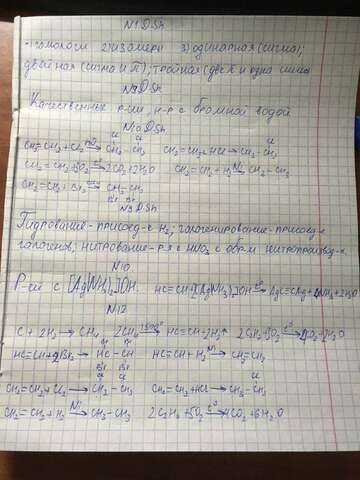 N1 DSh
1)гомологи 2)изомеры 3)одинарная(сигма);
двойная(сигма и П); тройная(две π и одна сигма
N9DSh
Качественные р-ии, н-р с бромной водой
N10 DSh
Cl Cl
CH2=CH2+Cl2→CH2-CH3 CH2=CH2+HCl→CH2-CH3
C2H4=CH2+3O2→2CO2+2H2O CH2=CH2+H2 Ni→CH3-CH3
CH2=CH2+Br2→CH2-CH3
Br Br
N9 DSh
Гидрирование-присоед-е H2; галогенирование-присоед-е
галогенов, нитрование-р-я с HNO3 с обр-м нитропроизвод-х.
N10
Р-ии с [Ag(NH3)2]OH. HC≡CH+2[Ag(NH3)2]OH→AgC≡CAg+4NH3+2H2O
N12
C+2H2→CH4 2CH4 1500°→HC≡CH+3H2↑ 2C2H2+5O2 t°→4CO2+2H2O
Br Br
HC≡CH+2Br2→HC-CH HC≡CH+H2 Ni→CH2=CH2
Br Br
Cl Cl Cl
CH2=CH2+Cl2→CH2-CH2 CH2=CH2+HCl→CH2-CH3
CH2=CH2+H2 Ni→CH3-CH3 2C2H6+7O2 t°→4CO2+6H2O